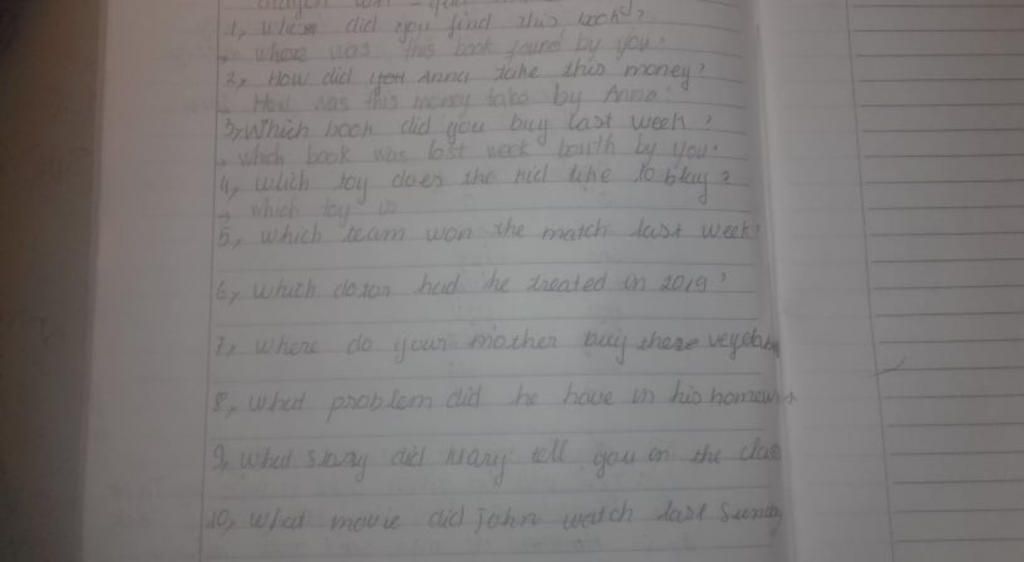 1, Where did you find this book?
where was this book found by you?
2, How did you Anna take this money?
How was this money take by Anna?
3, Which book did you buy last week?
which book was last week bouth by you?
4, which toy does the kid like to blay?
which toy is
5, which team won the match last week?
6, which doctor had he treated in 2019?
7, where do your mother buy these vegetab
8, what problem did he have in his homew
9, what story did Mary tell you in the clas
10, what movie did John watch last Sunday